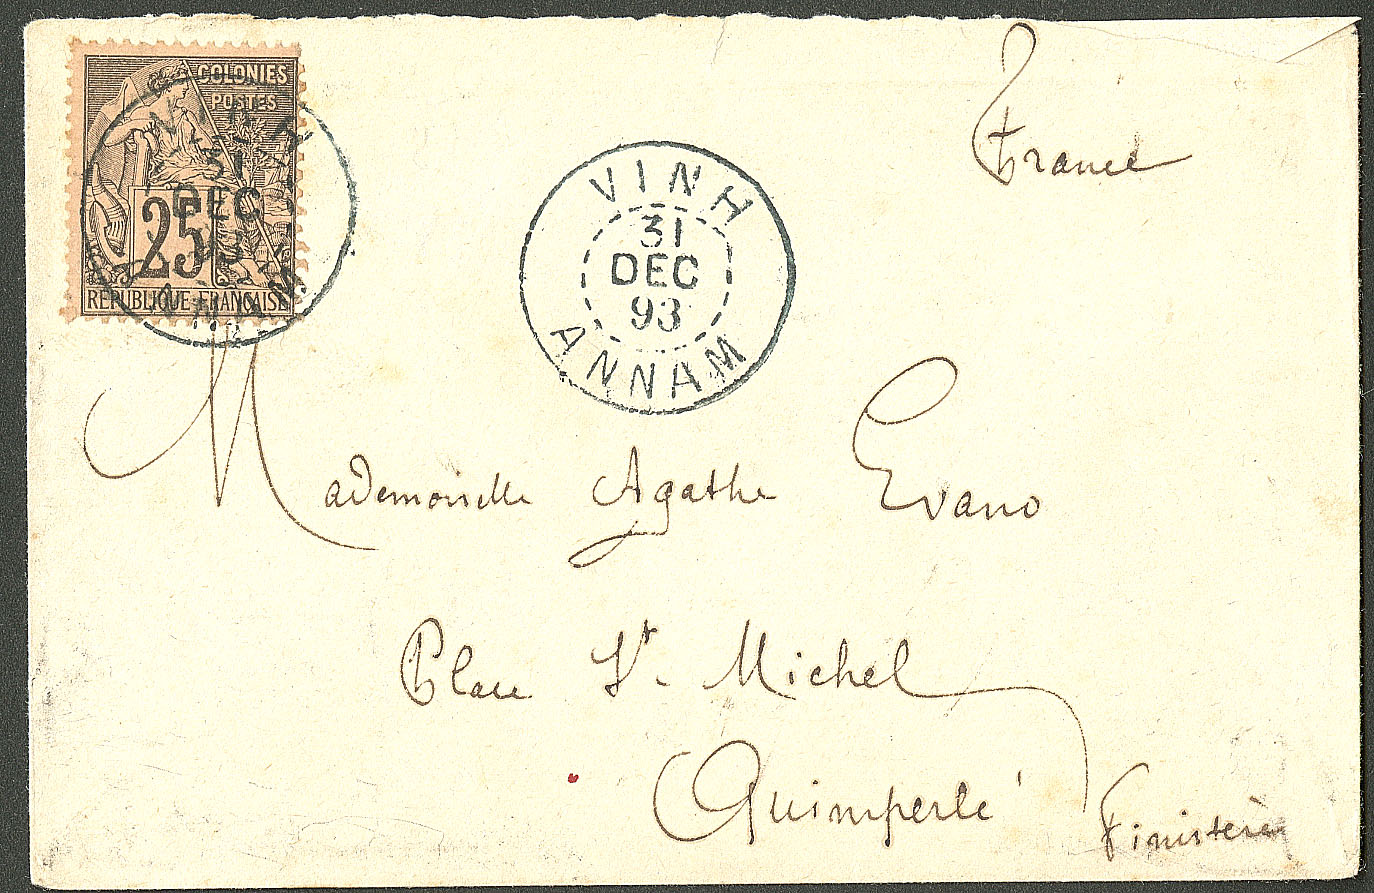 COLONIES
POSTES
25
RÉPUBLIQUE FRANÇAISE
VINH
31
DEC
93
ANNAM
VINH
31
DEC
93
ANNAM
France
Mademoiselle Agathe Evano
Place St. Michel
Quimperlé
Finistère